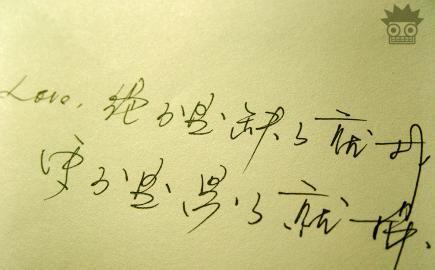 Love, 绝不是缺了就找,
更不是累了就换.